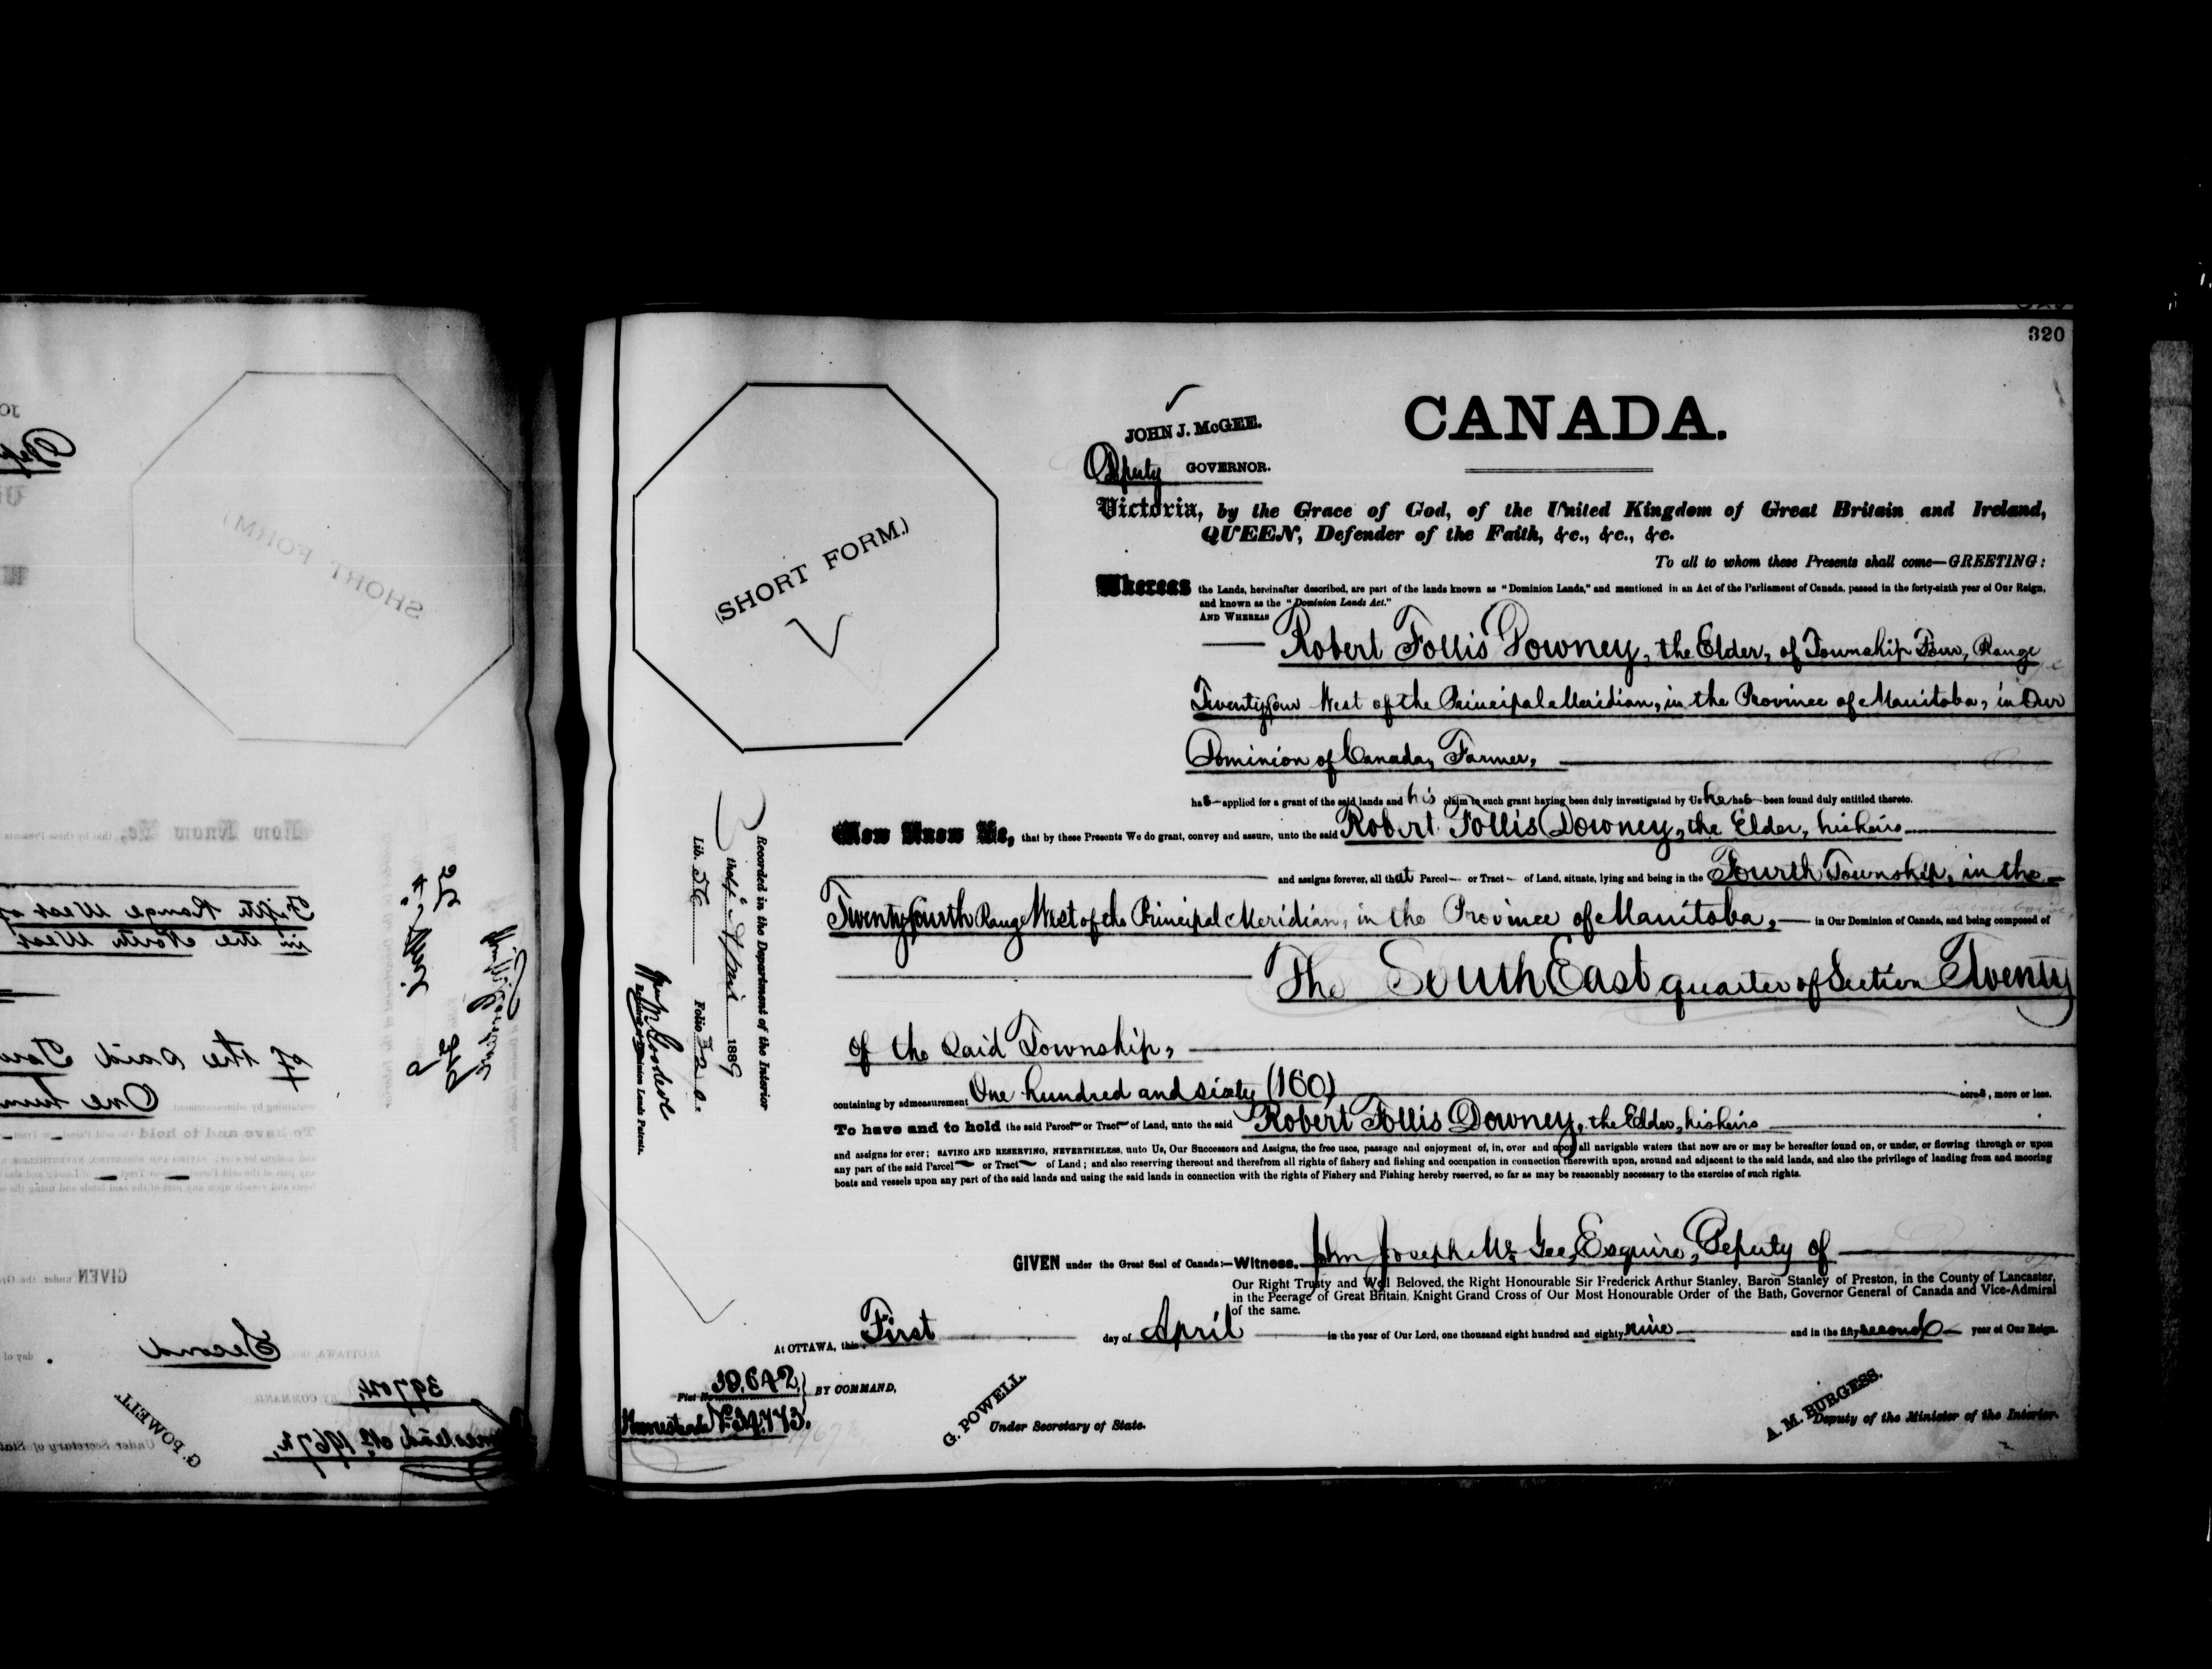 320
CANADA.
JOHN J. McGEE.
Deputy GOVERNOR.
(SHORT FORM.)
Victoria, by the Grace of God, of the United Kingdom of Great Britain and Ireland,
QUEEN, Defender of the Faith, &c., &c., &c.
To all to whom these Presents shall come—GREETING:
Whereas the Lands, hereinafter described, are part of the lands known as "Dominion Lands," and mentioned in an Act of the Parliament of Canada, passed in the forty-sixth year of Our Reign,
and known as the "Dominion Lands Act."
AND WHEREAS
Robert Follis Downey, the Elder, of Township Four, Range
Twenty four West of the Principal Meridian, in the Province of Manitoba, in Our
Dominion of Canada, Farmer,
has applied for a grant of the said lands and his claim to such grant having been duly investigated by Us he has been found duly entitled thereto.
Now Know Ye, that by these Presents We do grant, convey and assure, unto the said Robert Follis Downey, the Elder, his heirs
and assigns forever, all that Parcel or Tract of Land, situate, lying and being in the Fourth Township, in the
Twenty fourth Range West of the Principal Meridian, in the Province of Manitoba, in Our Dominion of Canada, and being composed of
The South East quarter of Section Twenty
of the said Township,
containing by admeasurement One hundred and sixty (160) acres, more or less.
To have and to hold the said Parcel or Tract of Land, unto the said Robert Follis Downey, the Elder, his heirs
and assigns for ever; SAVING AND RESERVING, NEVERTHELESS, unto Us, Our Successors and Assigns, the free uses, passage and enjoyment of, in, over and upon all navigable waters that now are or may be hereafter found on, or under, or flowing through or upon
any part of the said Parcel or Tract of Land; and also reserving thereout and therefrom all rights of fishery and fishing and occupation in connection therewith upon, around and adjacent to the said lands, and also the privilege of landing from and mooring
boats and vessels upon any part of the said lands and using the said lands in connection with the rights of Fishery and Fishing hereby reserved, so far as may be reasonably necessary to the exercise of such rights.
Recorded in the Department of the Interior
1889
Lib. 56 Folio 320
Registrar of Dominion Lands Patents.
GIVEN under the Great Seal of Canada:—Witness, John Joseph McGee, Esquire, Deputy of
Our Right Trusty and Well Beloved, the Right Honourable Sir Frederick Arthur Stanley, Baron Stanley of Preston, in the County of Lancaster,
in the Peerage of Great Britain, Knight Grand Cross of Our Most Honourable Order of the Bath, Governor General of Canada and Vice-Admiral
of the same.
At OTTAWA, this First day of April in the year of Our Lord, one thousand eight hundred and eighty nine and in the fifty second year of Our Reign.
BY COMMAND,
G. POWELL.
Under Secretary of State.
A. M. BURGESS.
Deputy of the Minister of the Interior.